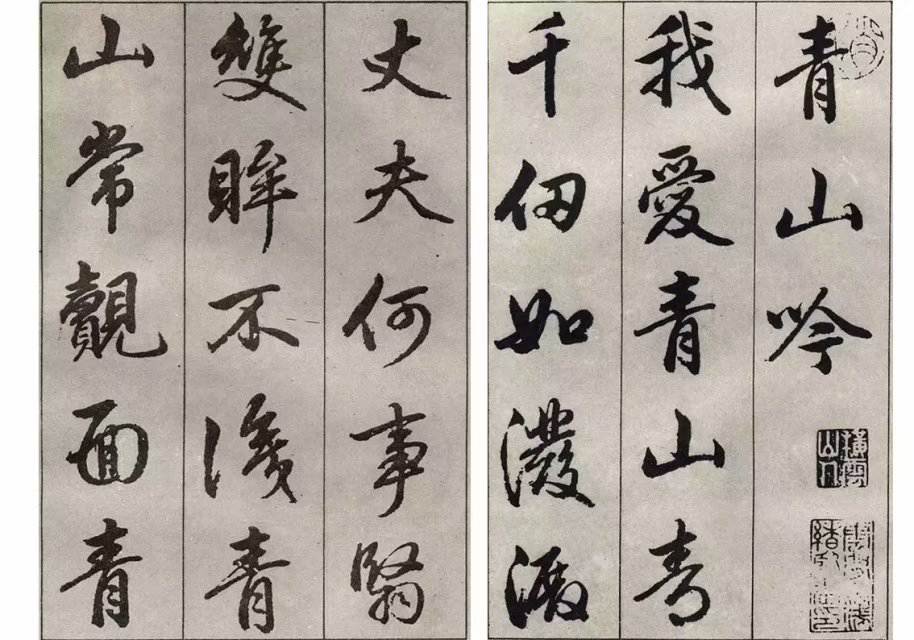 青山吟
我愛青山青
千仞如潑澱
丈夫何事翳
雙眸不復青
山常覿面青